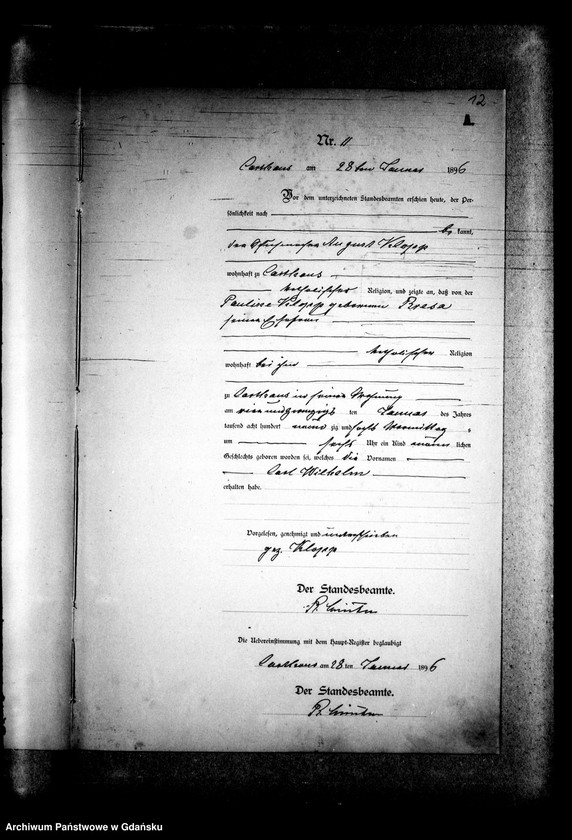 12
Nr. 11
Carthaus am 28ten Januar 1896
Vor dem unterzeichneten Standesbeamten erschien heute, der Per-
sönlichkeit nach
be kannt,
der August Klopp
wohnhaft zu Carthaus
katholischer Religion, und zeigte an, daß von der
Pauline Klopp geborenen
seiner Ehefrau
katholischer Religion
wohnhaft bei ihm
zu Carthaus in seiner Wohnung
am vierundzwanzigs ten Januar des Jahres
tausend acht hundert neun zig und sechs Vormittag s
um sechs Uhr ein Kind männ lichen
Geschlechts geboren worden sei, welches die Vornamen
Carl Wilhelm
erhalten habe.
Vorgelesen, genehmigt und unterschrieben
gez. Klopp
Der Standesbeamte.
Die Uebereinstimmung mit dem Haupt-Register beglaubigt
Carthaus am 28 ten Januar 1896
Der Standesbeamte.
Archiwum Państwowe w Gdańsku